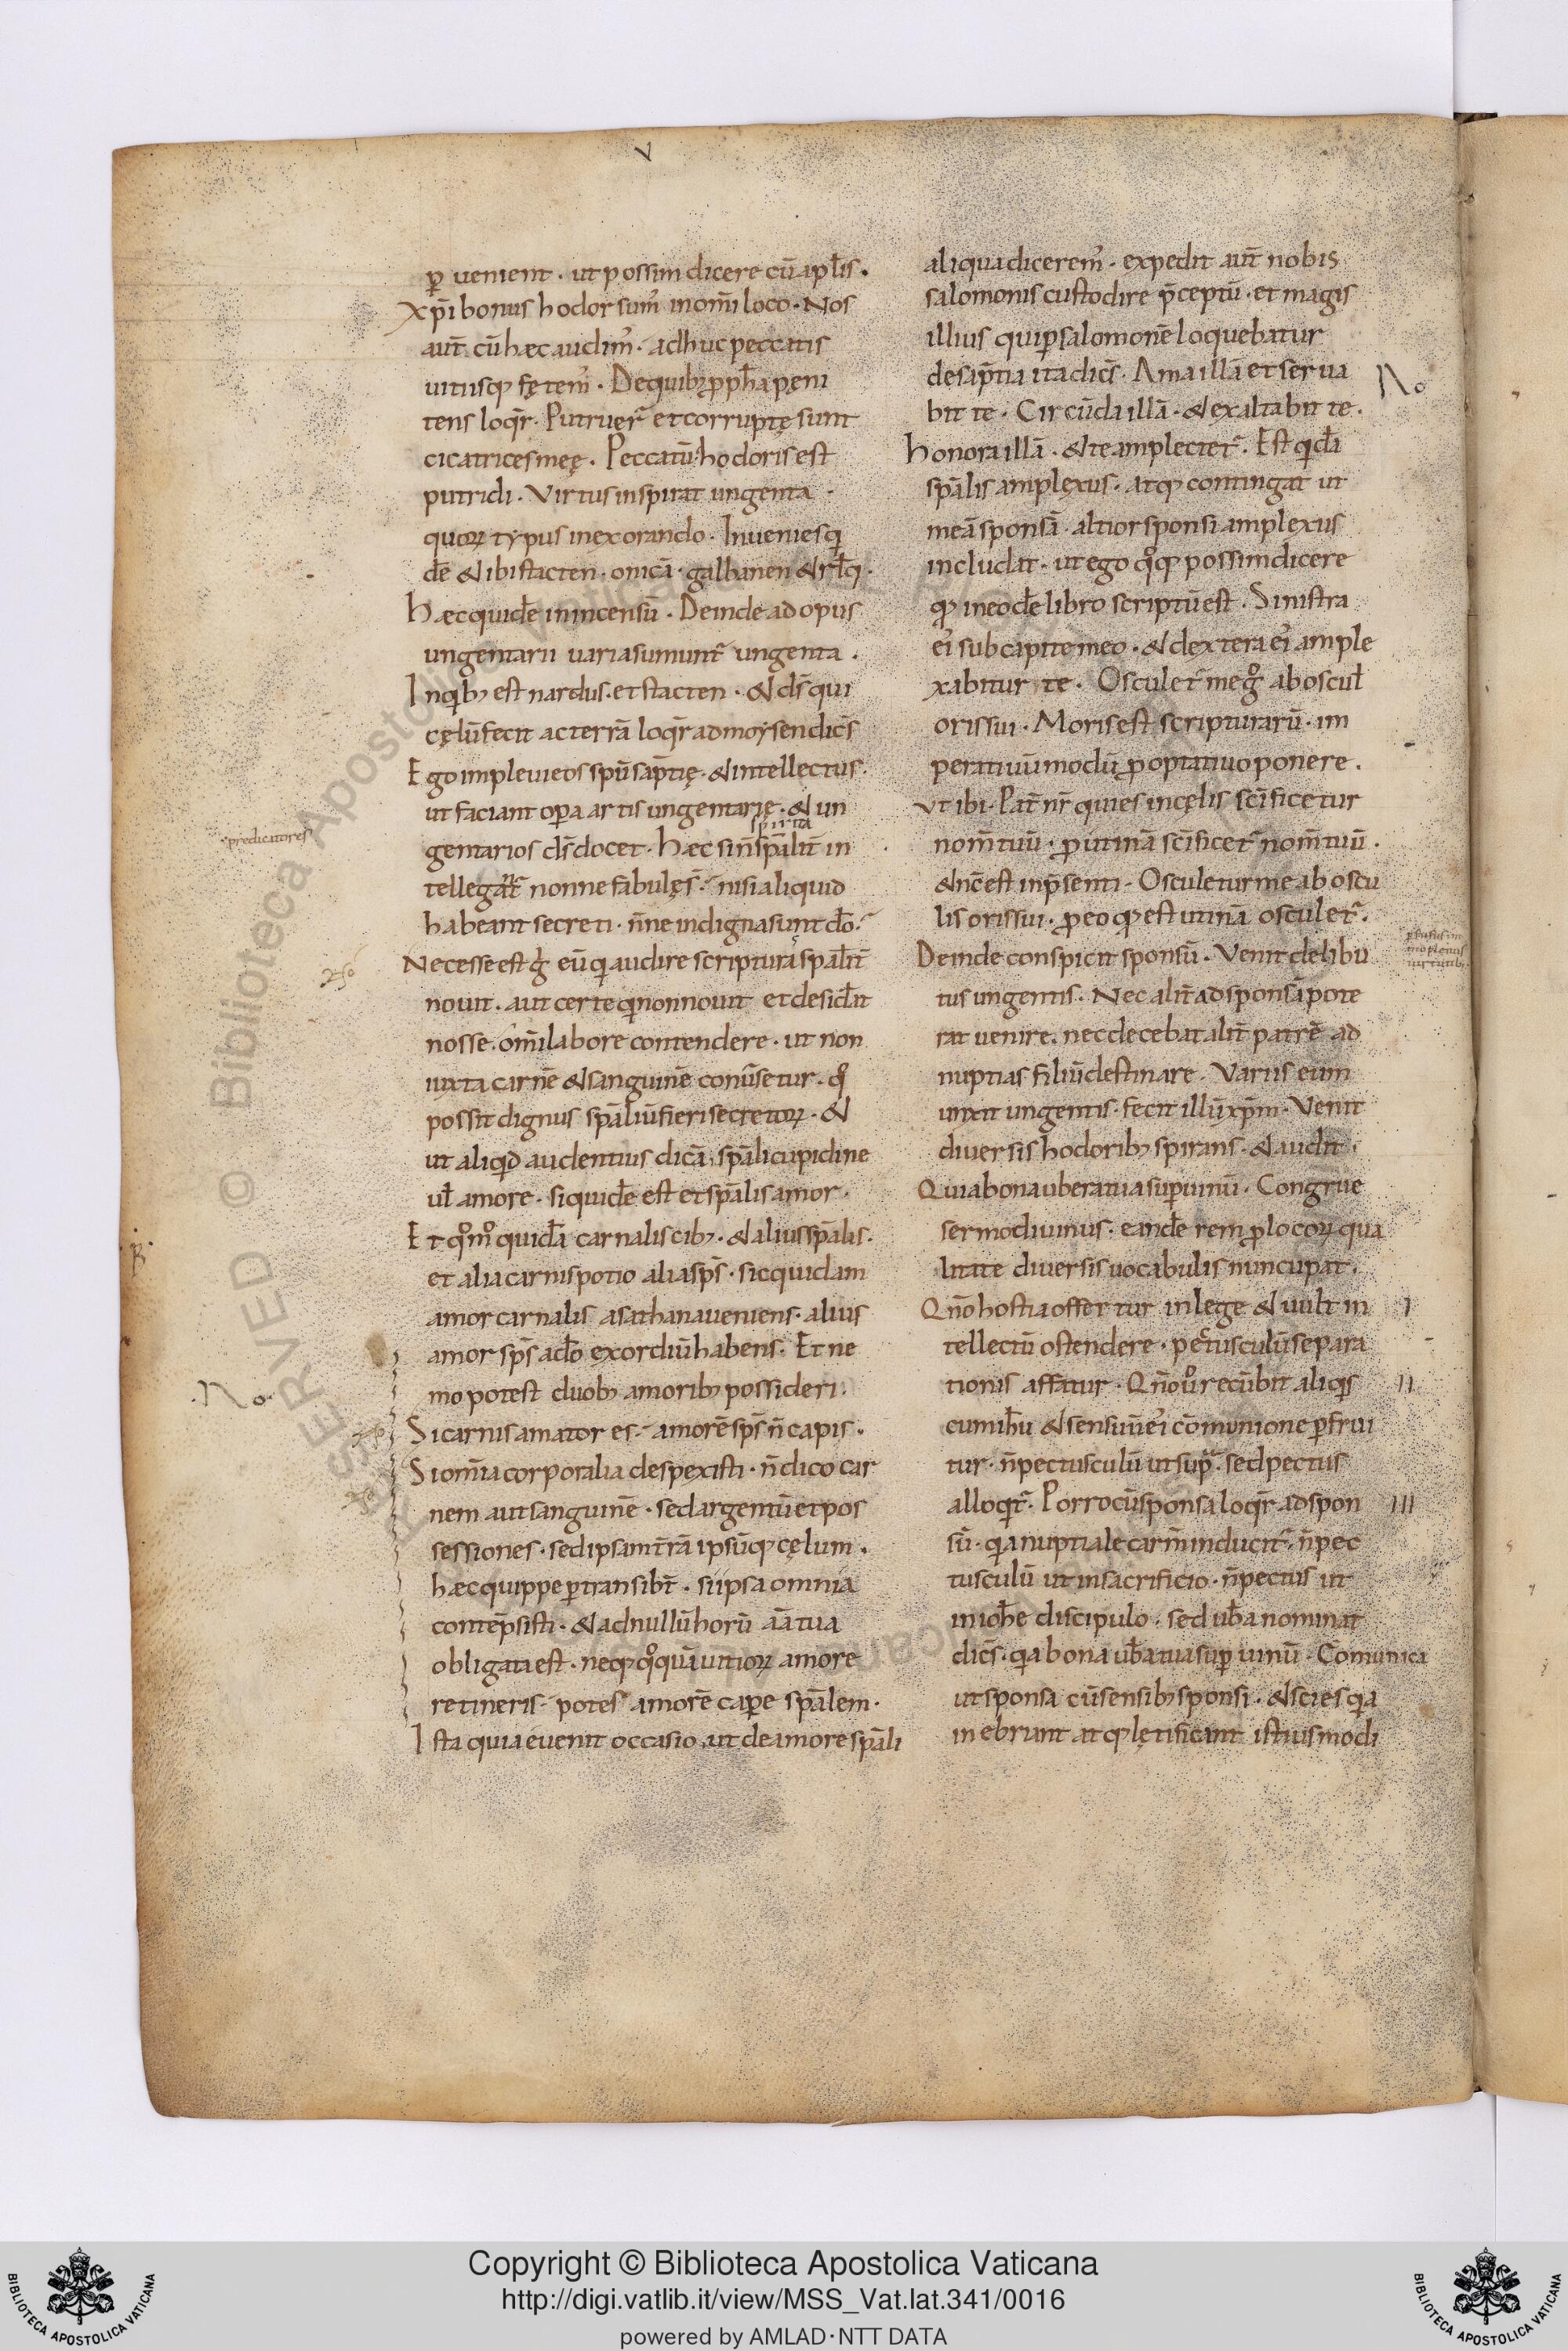 V
ꝑ uenient · ut possim dicere cū apl̄is ·
xp̄i bonus hodor sum᷒ in om̄i loco · Nos
aut̄ cū hæc audim᷒ · adhuc peccatis
uitiisq; fętem᷒ · De quib; ꝓph̄a pęni
tens loqr̄ · Putruer̄ et corruptę sunt
cicatrices meę · Peccatū hodoris est
putridi · Virtus inspirat ungenta ·
quoꝝ typus in exorando · Inuenies qi
dē & ibi stacten · onicā · galbanen & rl̄q ·
Hæc quidē in incensū · Deinde ad opus
ungentarii uaria sumunt᷑ ungenta ·
In qib; est nardus · et stacten · & ds̄ qui
cęlū fecit ac terrā loqr̄ ad moysen dic̄s
Ego impleui eos spū sap̄tię · & intellectus ·
ut faciant oꝑa artis ungentarię · & un
spirita
gentarios ds̄ docet · Hæc si n̄ spāliť in
tellegant᷑ nonne fabulę s̄ · nisi aliquid
habeant secreti · n̄ne indigna sunt dō ·
Necesse est g̊ eū qi audire scripturā spāliť
nouit · aut certe qi non nouit et desid̄at
nosse · om̄i labore contendere · ut non
iuxta carnē & sanguinē conūsetur · qo̊
possit dignus spāliū fieri secretoꝝ · &
ut aliqid audentius dicā · spāli cupidine
ul̄ amore · siquidē est et spālis amor ·
Et qo̊m̊ quidā carnalis cib; · & alius spālis ·
et alia carnis potio alia sp̄s · sic quidam
amor carnalis a sathana ueniens · alius
amor sp̄s a dō exordiū habens · Et ne
mo potest duob; amorib; possideri ·
Si carnis amator es · amorē sp̄s n̄ capis ·
Si om̄ia corporalia despexisti · n̄ dico car
nem aut sanguinē · sed argentū et pos
sessiones · sed ipsam t̄rā ipsūq; cęlum ·
hæc quippe ꝑtransibt̄ · si ipsa omnia
contēpsisti · & ad nullū horū aīa tua
obligata est · neq; qo̊quā uitioꝝ amore
retineris · potes amorē caꝑe spālem ·
Ista quia euenit occasio ut de amore spāli
aliqua dicerem᷒ · expedit aut̄ nobis
salomonis custodire p̄ceptū · et magis
illius qui ꝑ salomonē loquebatur
de sap̄tia ita dic̄s · Ama illā et serua
bit te · Circūda illā · & exaltabit te ·
Honora illā · & te amplectet᷑ · Est qidā
spālis amplexus · atq; contingat ut
meā sponsā · altior sponsi amplexus
includat · ut ego qo̊q; possim dicere
q; in eodē libro scriptū est · Sinistra
ei᷒ sub capite meo · & dextera ei᷒ ample
xabitur te · Osculet᷑ me g̊ ab oscul̄
oris sui · Moris est scripturarū · im
peratiuū modū ꝓ optatiuo ponere ·
Vt ibi · Pat̄ nr̄ qui es in cęlis sc̄ificetur
nom̄ tuū · ꝓ utinā sc̄ificet᷑ nom̄ tuū ·
& nc̄ est in p̄senti · Osculetur me ab oscu
lis oris sui · ꝓ eo q; est utinā osculet᷑ ·
Deinde conspicit sponsū · Venit delibu
tus ungentis · Nec alit̄ ad sponsā pote
rat uenire · nec decebat alit̄ patrē ad
nuptias filiū destinare · Variis eum
unxit ungentis · fecit illū xp̄m · Venit
diuersis hodorib; spirans · & audit ·
Quia bona ubera tua suꝑ uinū · Congrue
sermo diuinus · eandē rem ꝓ locoꝝ qua
litate diuersis uocabulis nuncupat ·
Qn̄o hostia offertur in lege & uult in
tellectū ostendere · pectusculū separa
tionis affatur · Qn̄o uo̊ recūbit aliqis
cum ih̄u & sensuū ei᷒ cōmunione ꝑfrui
tur · n̄ pectusculū ut sup̄ · sed pectus
alloqit᷑ · Porro cū sponsa loqr̄ ad spon
sū · qia nuptiale carm̄ inducit᷑ · n̄ pec
tusculū ut in sacrificio · n̄ pectus ut
in ioh̄e discipulo · sed ub̄a nominat
dic̄s · qia bona ub̄a tua suꝑ uinū · Cōmunica
ut sponsa cū sensib; sponsi · & scies qia
inebriant atq; lętificant istiusmodi
predicatores
No
No
I
II
III
Copyright © Biblioteca Apostolica Vaticana
http://digi.vatlib.it/view/MSS_Vat.lat.341/0016
powered by AMLAD·NTT DATA
BIBLIOTECA APOSTOLICA VATICANA
BIBLIOTECA APOSTOLICA VATICANA